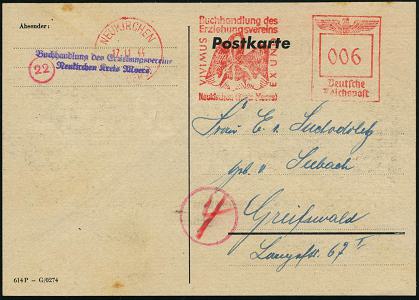 Absender:
NEUKIRCHEN
17.11.44
Buchhandlung des Erziehungsvereins
Neukirchen Kreis Moers
22
Buchhandlung des
Erziehungsvereins
VIVIMUS
EX UNO
Neukirchen (Kreis Moers)
006
Deutsche
Reichspost
Postkarte
Frau E. v. Suchodoletz
geb. v. Seebach
Greifswald
Langestr. 67 I
614 P – G/0274